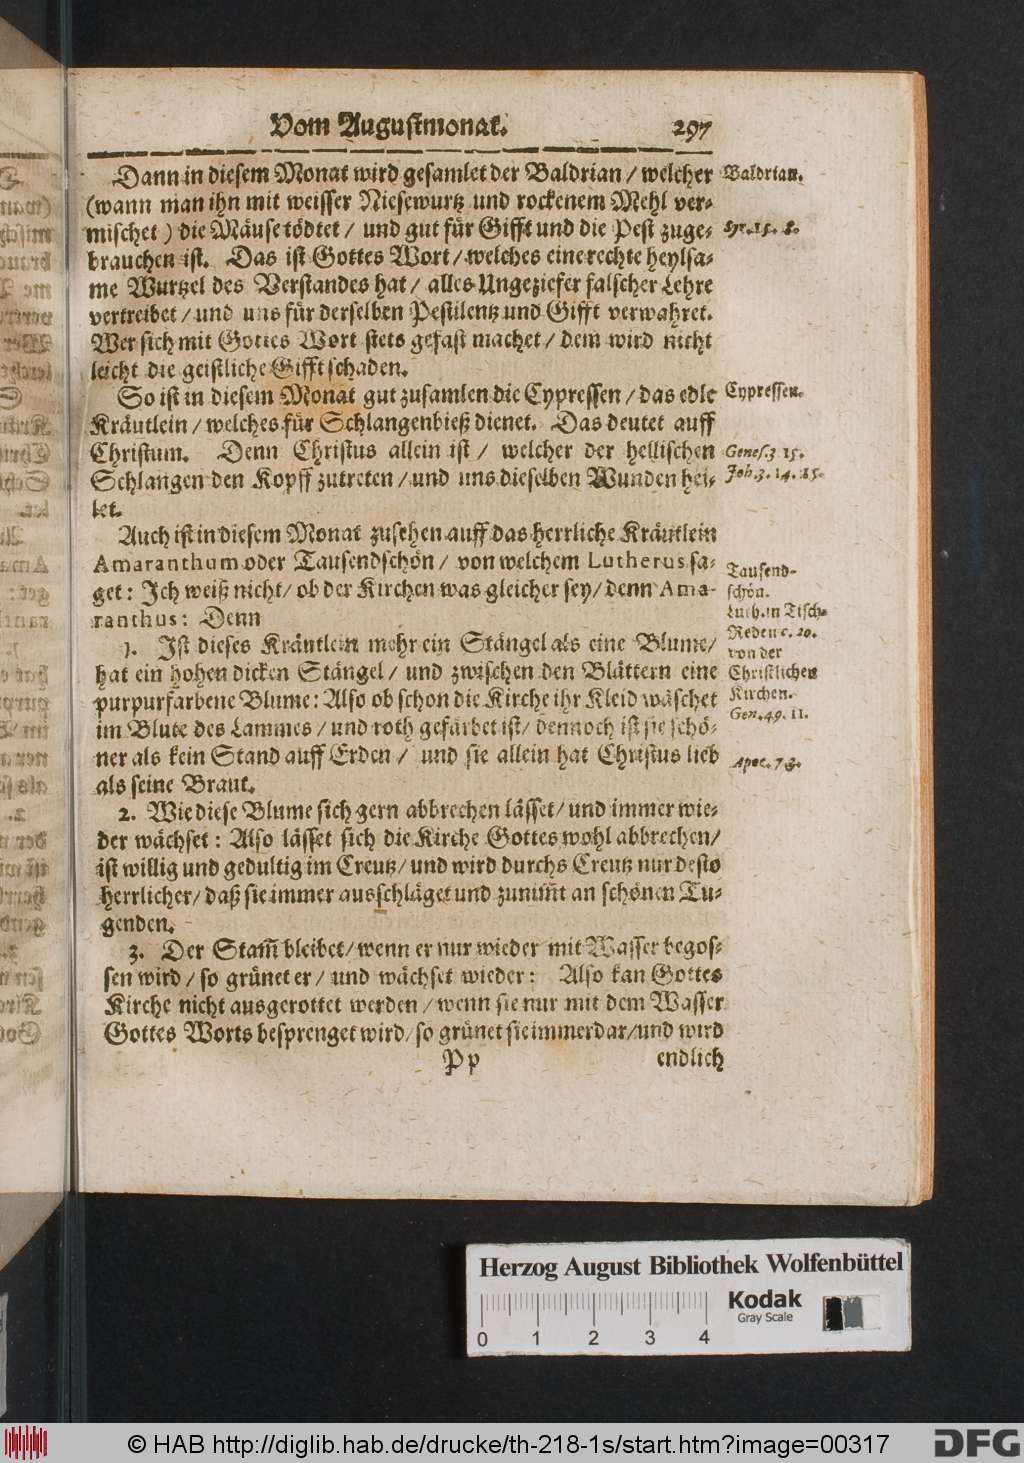 Vom Augustmonat. 297
Dann in diesem Monat wird gesamlet der Baldrian / welcher
(wann man ihn mit weisser Niesewurtz und rockenem Mehl ver-
mischet ) die Mäuse tödtet / und gut für Gifft und die Pest zuge-
brauchen ist. Das ist Gottes Wort / welches eine rechte heylsa-
me Wurtzel des Verstandes hat / alles Ungeziefer falscher Lehre
vertreibet / und uns für derselben Pestilentz und Gifft verwahret.
Wer sich mit Gottes Wort stets gefast machet / dem wird nicht
leicht die geistliche Gifft schaden.
So ist in diesem Monat gut zusamlen die Cypressen / das edle
Kräutlein / welches für Schlangenbieß dienet. Das deutet auff
Christum. Denn Christus allein ist / welcher der hellischen
Schlangen den Kopff zutreten / und uns dieselben Wunden hei-
let.
Auch ist in diesem Monat zusehen auff das herrliche Kräutlein
Amaranthum oder Tausendschön / von welchem Lutherus sa-
get: Ich weiß nicht / ob der Kirchen was gleicher sey / denn Ama-
ranthus: Denn
1. Ist dieses Kräutlein mehr ein Stängel als eine Blume /
hat ein hohen dicken Stängel / und zwischen den Blättern eine
purpurfarbene Blume: Also ob schon die Kirche ihr Kleid wäschet
im Blute des Lammes / und roth gefärbet ist / dennoch ist sie schö-
ner als kein Stand auff Erden / und sie allein hat Christus lieb
als seine Braut.
2. Wie diese Blume sich gern abbrechen lässet / und immer wie-
der wächset: Also lässet sich die Kirche Gottes wohl abbrechen /
ist willig und gedultig im Creutz / und wird durchs Creutz nur desto
herrlicher / daß sie immer ausschläget und zunim̃t an schönen Tu-
genden.
3. Der Stam̃ bleibet / wenn er nur wieder mit Wasser begos-
sen wird / so grünet er / und wächset wieder: Also kan Gottes
Kirche nicht ausgerottet werden / wenn sie nur mit dem Wasser
Gottes Worts besprenget wird / so grünet sie immerdar / und wird
Pp endlich
Baldrian.
Syr. 15. 8.
Cypressen.
Genes. 3. 15.
Joh. 3. 14. 15.
Tausend-
schön.
Luth. in Tisch-
Reden c. 20.
von der
Christlichen
Kirchen.
Gen. 49. 11.
Apoc. 7.
Herzog August Bibliothek Wolfenbüttel
0 1 2 3 4
Kodak
Gray Scale
© HAB http://diglib.hab.de/drucke/th-218-1s/start.htm?image=00317
DFG